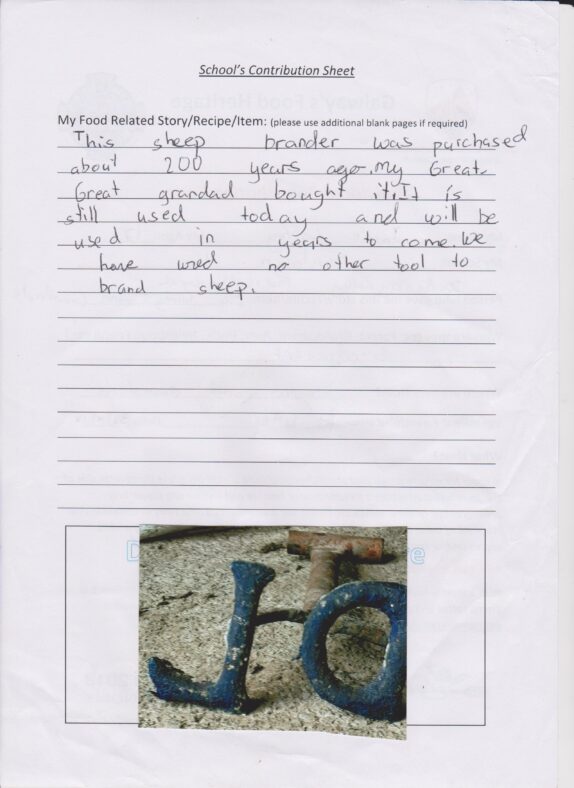 School's Contribution Sheet
My Food Related Story/Recipe/Item: (please use additional blank pages if required)
This sheep brander was purchased
about 200 years ago. My Great
Great grandad bought it. It is
still used today and will be
used in years to come. We
have used no other tool to
brand sheep.
D e
JO